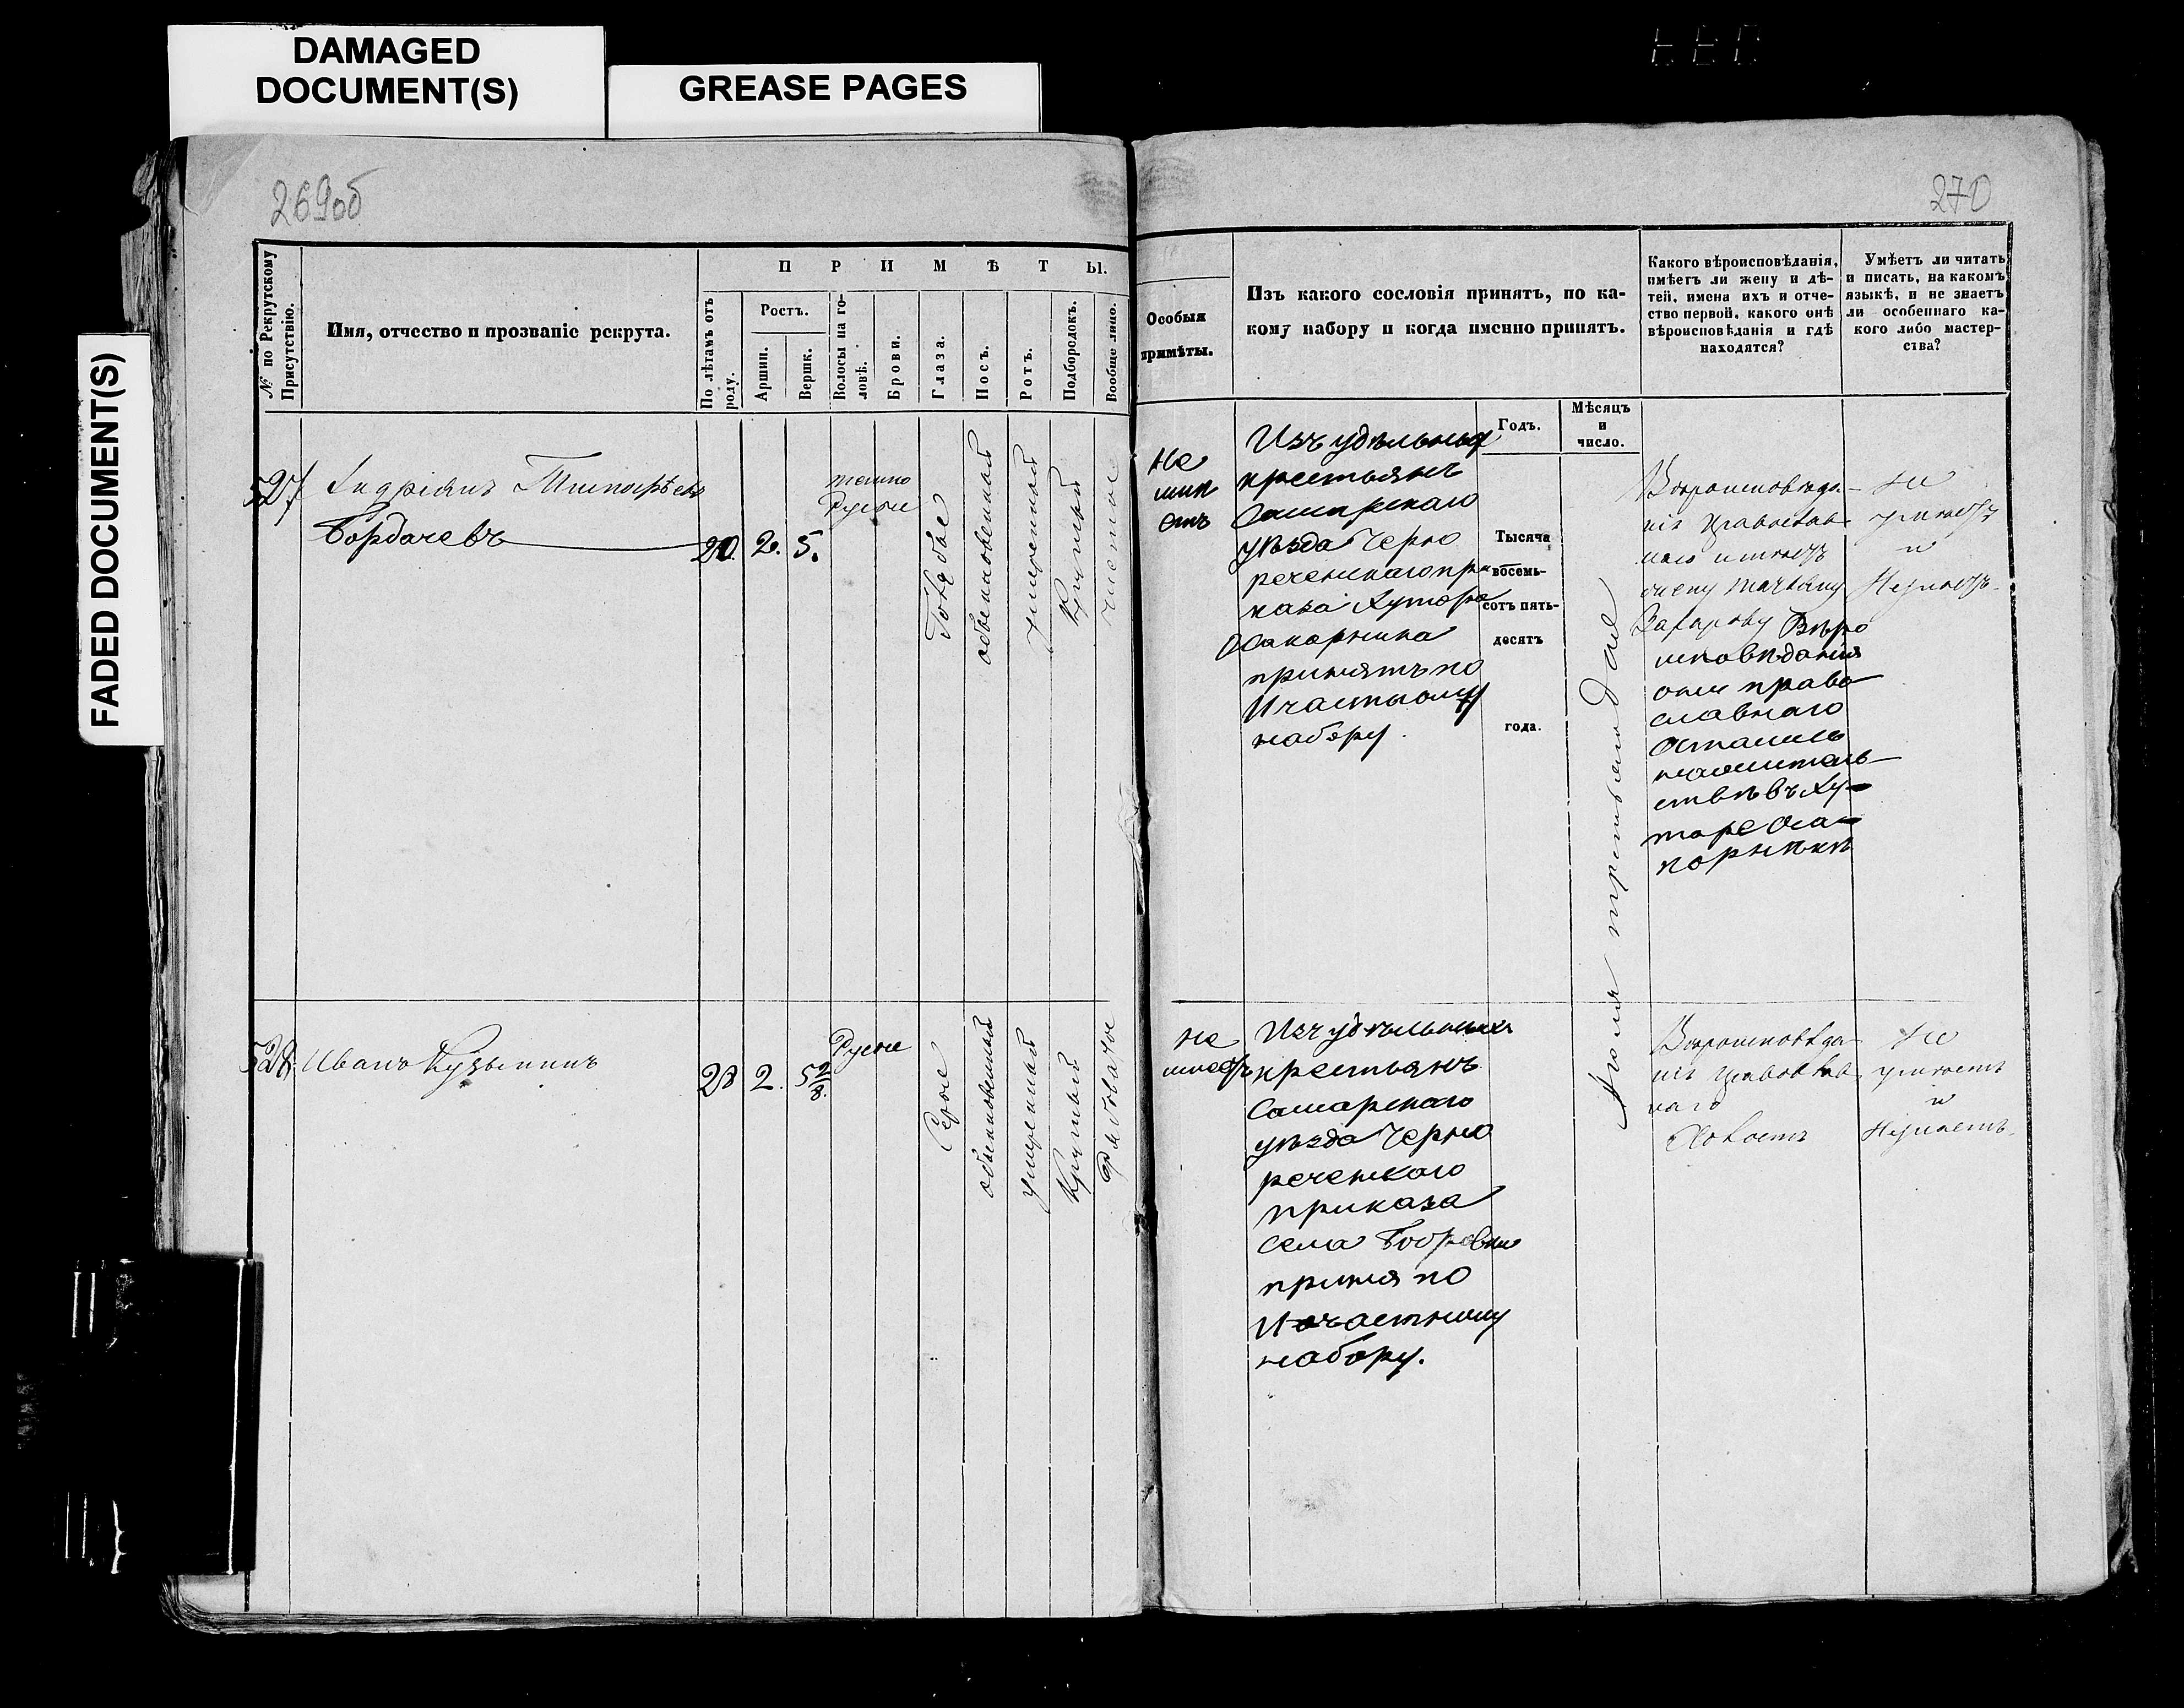 DAMAGED
DOCUMENT(S)
GREASE PAGES
FADED DOCUMENT(S)
269об
270
№ по Рекрутскому
Присутствію.
Имя, отчество и прозваніе рекрута.
ПРИМѢТЫ.
По лѣтамъ отъ
роду.
Ростъ.
Аршин.
Вершк.
Волосы на го-
ловѣ.
Брови.
Глаза.
Носъ.
Ротъ.
Подбородокъ.
Вообще лицо.
Особыя
примѣты.
Изъ какого сословія принятъ, по ка-
кому набору и когда именно принятъ.
Какого вѣроисповѣданія,
имѣетъ ли жену и дѣ-
тей, имена ихъ и отче-
ство первой, какого онѣ
вѣроисповѣданія и гдѣ
находятся?
Умѣетъ ли читать
и писать, на какомъ
языкѣ, и не знаетъ
ли особеннаго ка-
кого либо мастер-
ства?
Годъ.
Мѣсяцъ
и
число.
527
Андріянъ
Бордачевъ
20.
2.
5.
темно
Русые
Голубые
обыкновенный
умѣренный
Круглый
чистое
Не
имѣ
етъ
Изъ удѣльныхъ
крестьянъ
Самарскаго
уѣзда Черно
реченскаго при
каза Хутора
принятъ по
II частному
набору.
Тысяча
восемь-
сотъ пять-
десятъ
года.
Іюля
Вѣроисповѣда-
нія православ
наго имѣетъ
жену
Захарову Вѣро
исповѣданія
они право
славнаго
жительь
ствѣ въ Ху-
торе
Не
умѣетъ
и
Неумѣетъ.
528.
Иванъ Кузьминъ
2.
5 2/8.
Русые
Серые
обыкновенный
умѣренный
Круглый
Рябоватое
Не
имеетъ
Изъ удѣльныхъ
крестьянъ
Самарскаго
уѣзда Черно
реченскаго
приказа
села Бобровки
приня по
II частному
набору.
Вѣроисповѣда-
нія православ
наго
Холостъ
Не
умѣетъ
и
Неумѣетъ.